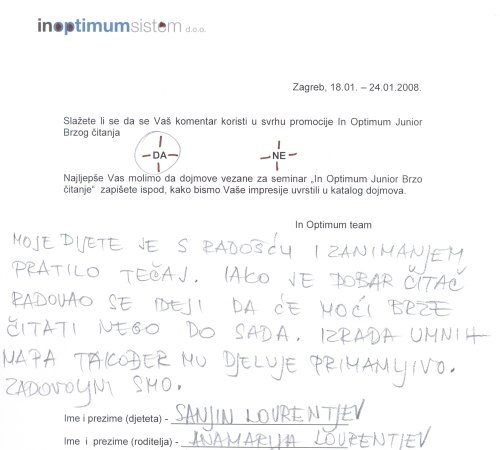 inoptimumsistem d.o.o.
Zagreb, 18.01. – 24.01.2008.
Slažete li se da se Vaš komentar koristi u svrhu promocije In Optimum Junior
Brzog čitanja
DA NE
Najljepše Vas molimo da dojmove vezane za seminar „In Optimum Junior Brzo
čitanje“ zapišete ispod, kako bismo Vaše impresije uvrstili u katalog dojmova.
In Optimum team
MOJE DIJETE JE S RADOŠĆU I ZANIMANJEM
PRATILO TEČAJ. IAKO JE DOBAR ČITAČ
RADOVAO SE IDEJI DA ĆE MOĆI BRZE
ČITATI NEGO DO SADA. IZRADA UMNIH
MAPA TAKOĐER MU DJELUJE PRIMAMLJIVO.
ZADOVOLJNI SMO.
Ime i prezime (djeteta) - SANJIN LOVRENTJEV
Ime i prezime (roditelja) - ANAMARIJA LOVRENTJEV